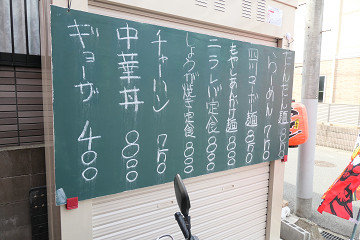 たんたん麺 800
らーめん 750
四川マーボ麺 800
もやしあんかけ麺 800
ニラレバ定食 800
しょうが焼き定食 800
チャーハン 750
中華丼 800
ギョーザ 400